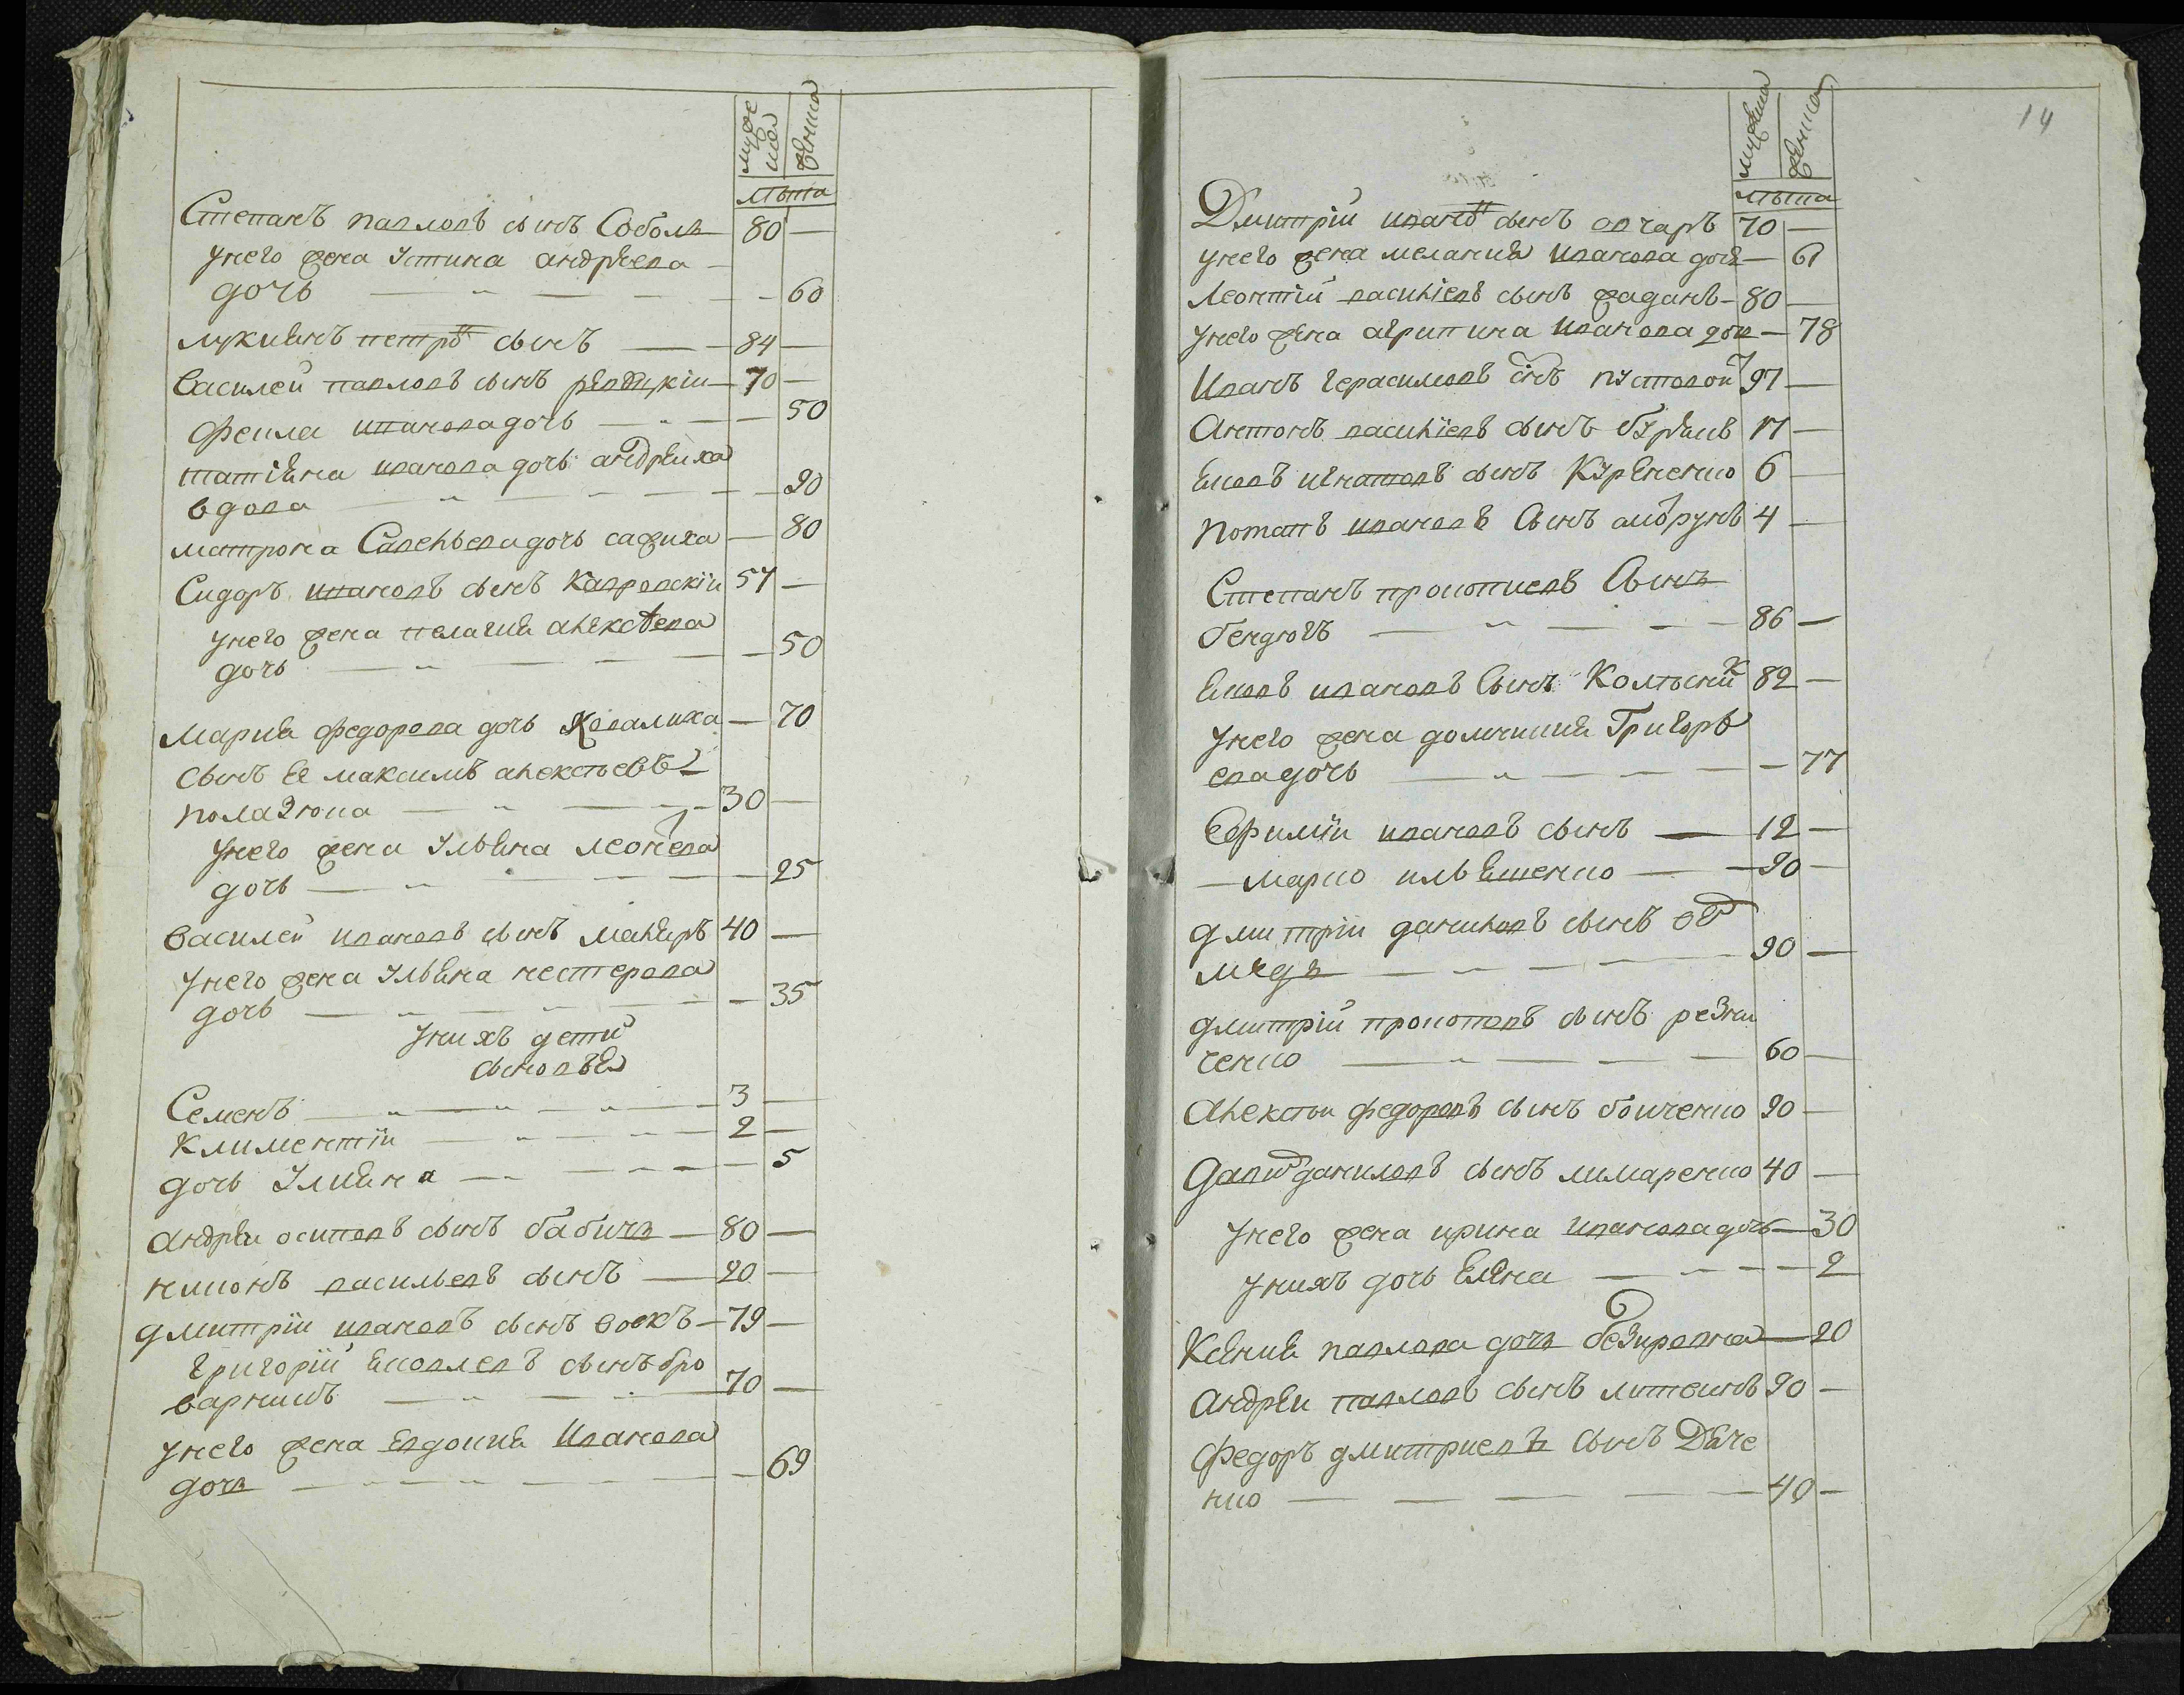 мужеска
женска
лѣта
Степанъ павловъ сынъ Соболь 80 —
унего жена Устина андрѣева
дочь — — 60
лукиянъ петровъ сынъ — 84 —
Василей павловъ сынъ 70 —
Фекла иванова дочь — 50
татіяна иванова дочь андрѣиха
вдова — — 90
матрона Савельева дочь сажиха — 80
Сидоръ ивановъ сынъ Кавровскїй 57 —
унего жена пелагия алексѣева
дочь — — 50
Мария федорова дочь Ковалиха — 70
сынъ Ее максимъ алексѣевъ
полазнюка — 30 —
унего жена Ульяна леонтева
дочь — — 25
Василей ивановъ сынъ маляръ 40 —
унего жена Ульяна нестерова
дочь — — 35
унихъ дети
сыновья
Семенъ — 3 —
Климентїй — 2 —
дочь Улияна — — 5
андрей осиповъ сынъ бабичь — 80 —
никонъ васильевъ сынъ — 20 —
дмитрїй ивановъ сынъ вовкъ — 79 —
григорїй яковлевъ сынъ бро
варникъ — 70 —
унего жена Евдокия Иванова
дочь — — 69
14
мужеска
женска
лѣта
Дмитрїй ивановъ сынъ овчаръ 70 —
унего жена мелания Иванова дочь — 61
леонтїй васильевъ сынъ жаданъ — 80 —
унего жена агрипина Иванова дочь — 78
Иванъ герасимовъ сынъ пустовой 97 —
Антонъ васильевъ сынъ бурякъ 17 —
Яковъ игнатовъ сынъ Куриленко 6 —
потапъ ивановъ Сынъ 4 —
Степанъ прокопиевъ Сынъ
бендюгъ — 86 —
Яковъ ивановъ Сынъ 82 —
унего жена домникия Григорь
ева дочь — — 77
Ефимїй ивановъ сынъ — 12 —
— марко ильяшенко — 90 —
дмитрїй даниловъ сынъ
медь — 90 —
дмитрїй прокоповъ сынъ резни
ченко — 60 —
Алексѣй федоровъ сынъ бойченко 20 —
Давидъ даниловъ сынъ лимаренко 40 —
унего жена ирина Иванова дочь — 30
унихъ дочь Елена — 2
Ксения павлова дочь безкровна — 20
андрей павловъ сынъ литвинъ 90 —
Федоръ дмитриевъ Сынъ Дяче
нко — 40 —